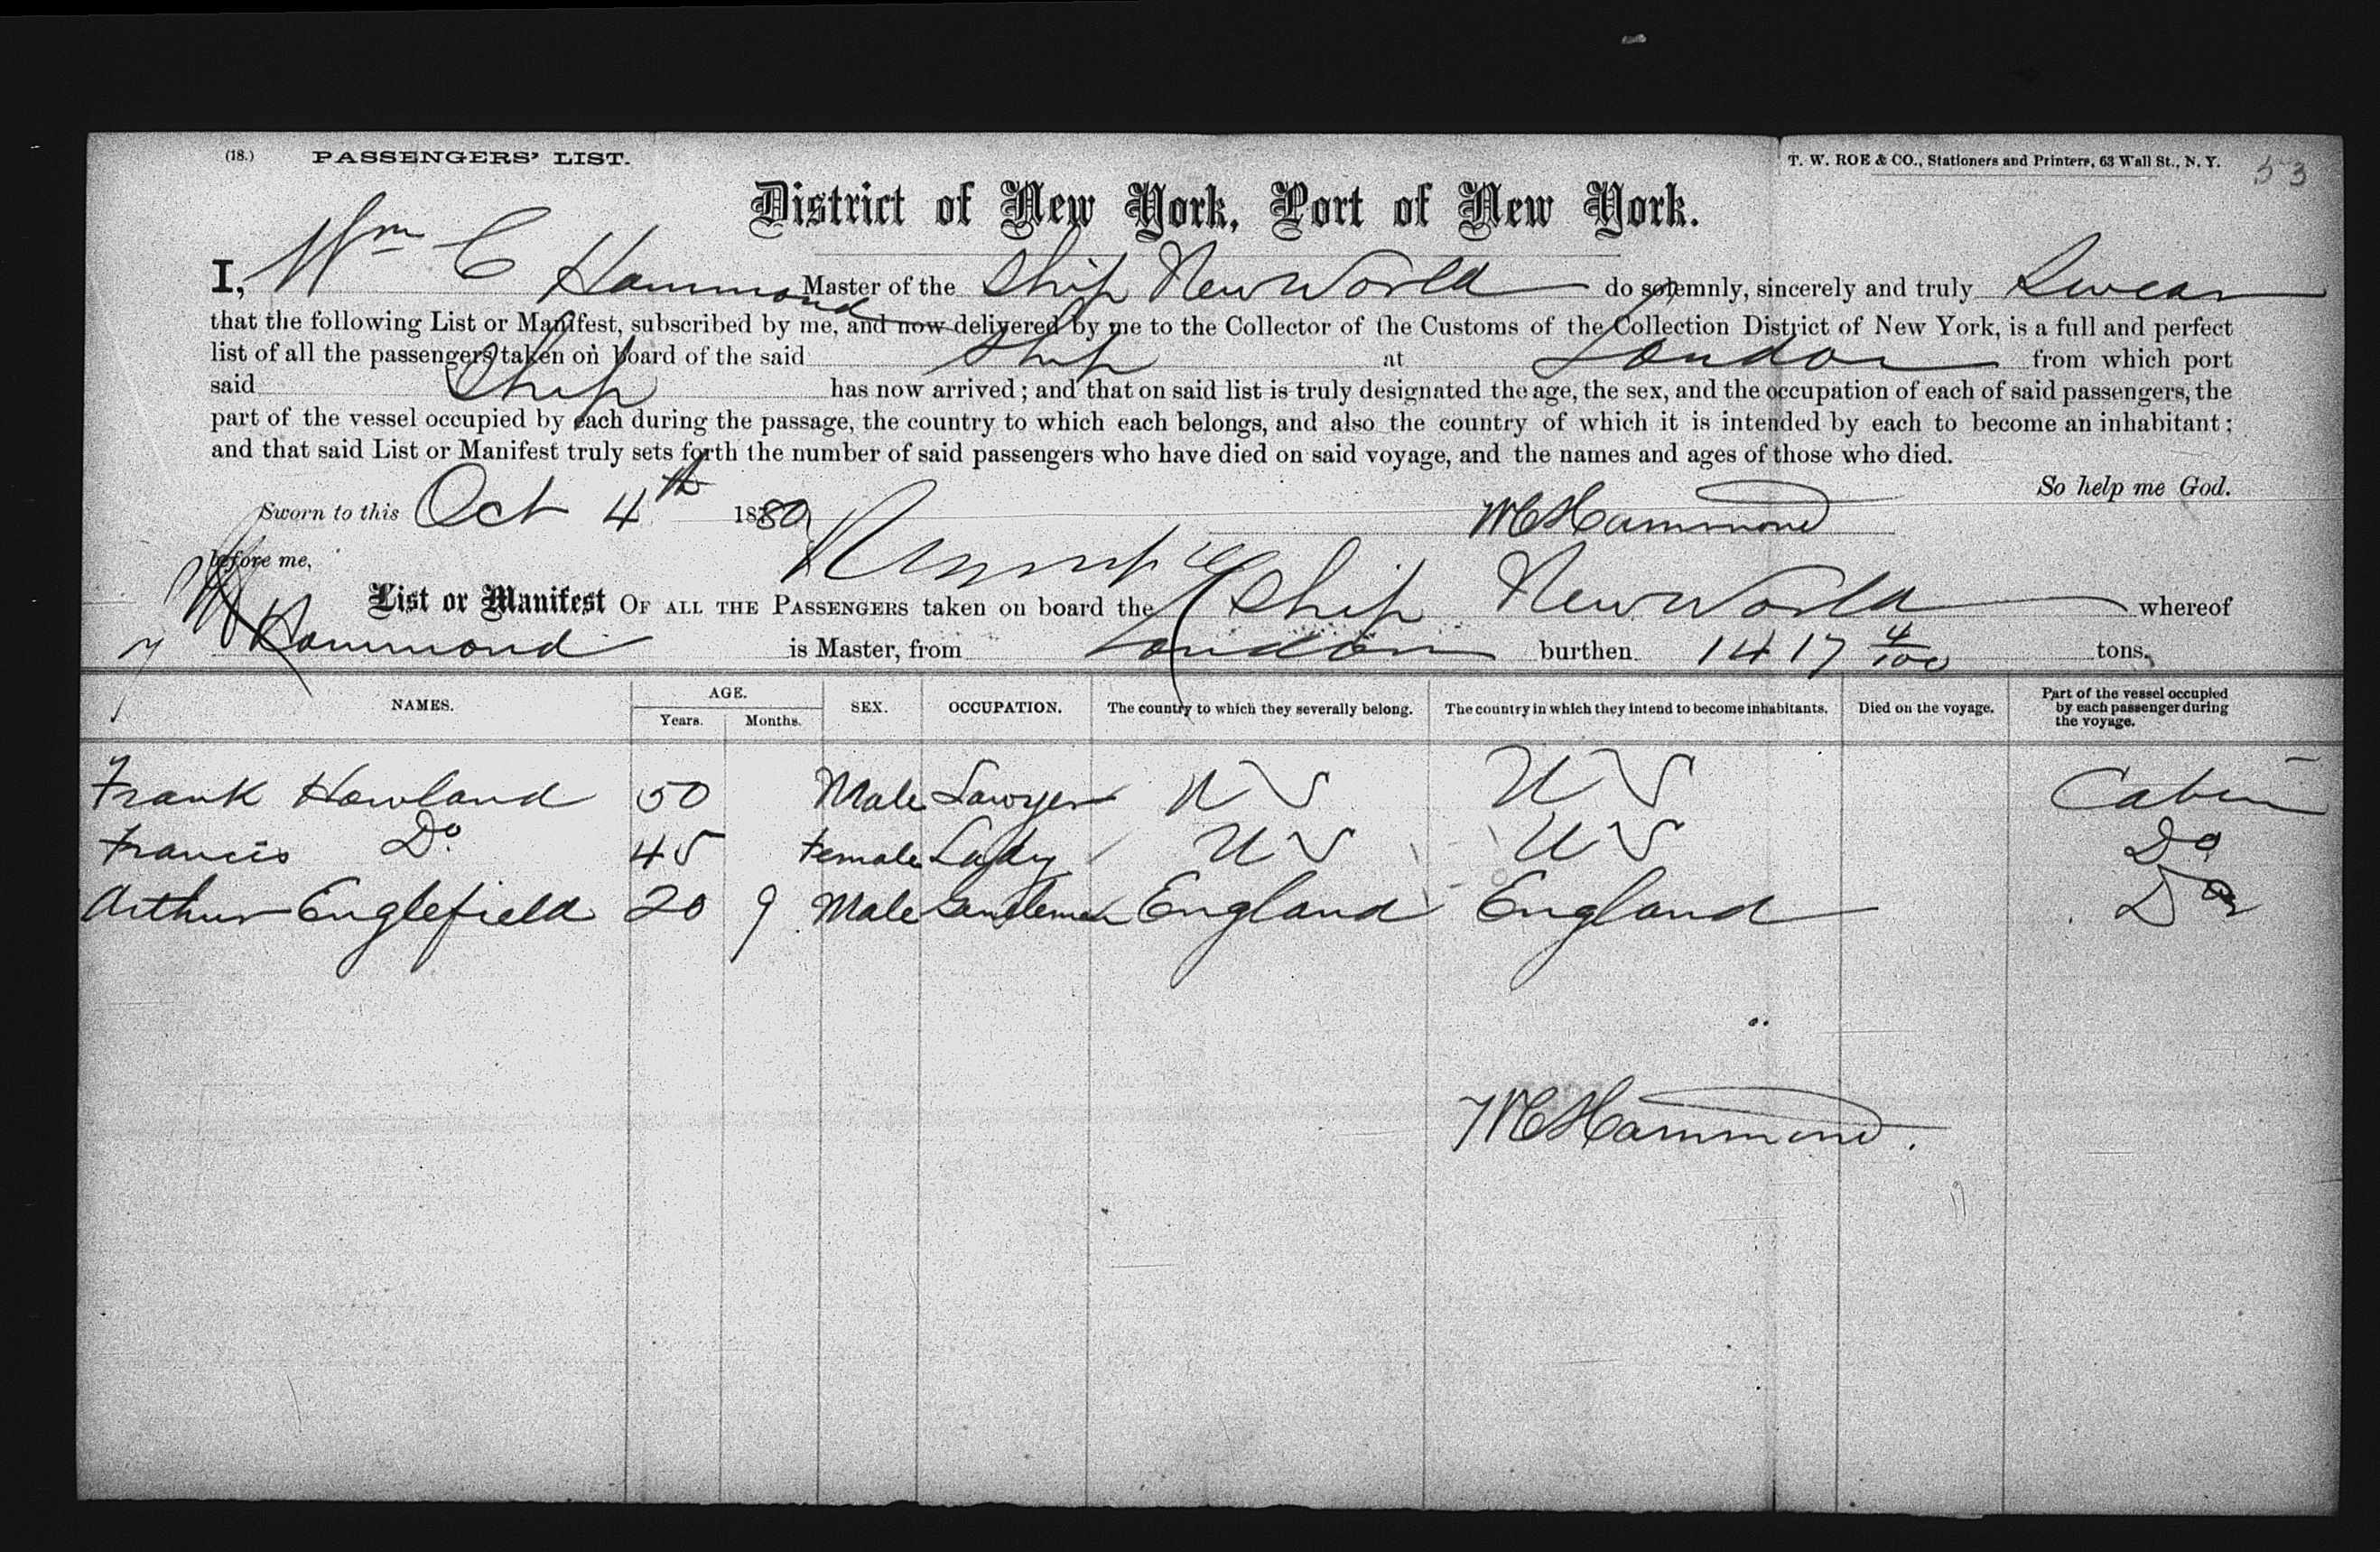 (18.) PASSENGERS' LIST. T. W. ROE & CO., Stationers and Printers, 63 Wall St., N. Y. 53
District of New York, Port of New York.
I, Wm C Hammond Master of the Ship New World do solemnly, sincerely and truly Swear
that the following List or Manifest, subscribed by me, and now delivered by me to the Collector of the Customs of the Collection District of New York, is a full and perfect
list of all the passengers taken on board of the said Ship at London from which port
said Ship has now arrived; and that on said list is truly designated the age, the sex, and the occupation of each of said passengers, the
part of the vessel occupied by each during the passage, the country to which each belongs, and also the country of which it is intended by each to become an inhabitant;
and that said List or Manifest truly sets forth the number of said passengers who have died on said voyage, and the names and ages of those who died.
So help me God.
Sworn to this Oct 4th 1880 WC Hammond
before me,
List or Manifest OF ALL THE PASSENGERS taken on board the Ship New World whereof
Hammond is Master, from London burthen 1417 4/100 tons.
NAMES. AGE. Years. Months. SEX. OCCUPATION. The country to which they severally belong. The country in which they intend to become inhabitants. Died on the voyage. Part of the vessel occupied by each passenger during the voyage.
Frank Howland 50 Male Lawyer U S U S Cabin
Francis Do 45 Female Lady U S U S Do
Arthur Englefield 20 9 Male Gentleman England England Do
WC Hammond.